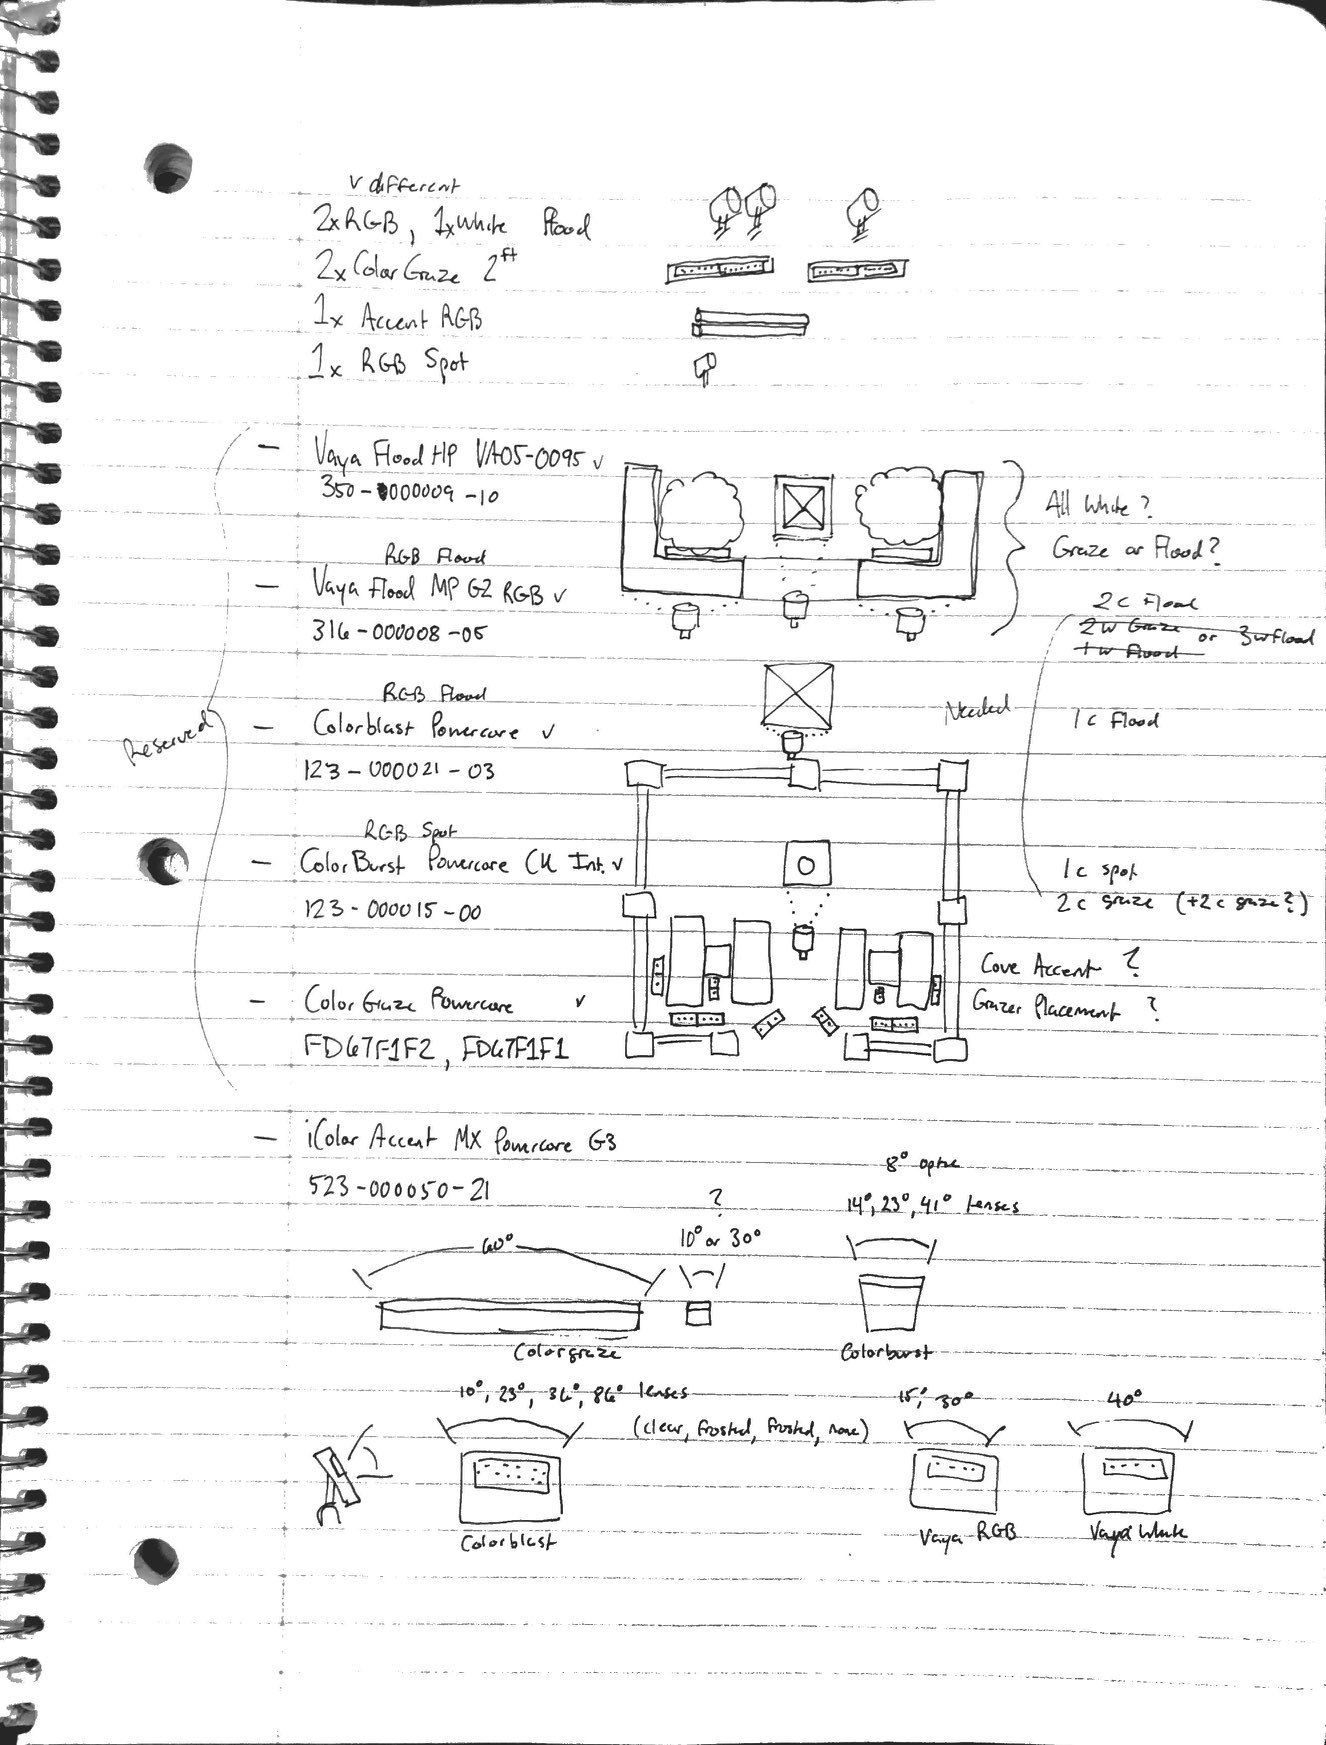 v different
2xRGB, 1xWhite Flood
2xColorGraze 2ft
1x Accent RGB
1x RGB Spot
Reserved
— Vaya Flood HP VA05-0095 ✓
350-0000009-10
RGB Flood
— Vaya Flood MP G2 RGB ✓
316-000008-05
RGB Flood
— Colorblast Powercore ✓
123-000021-03
RGB Spot
— ColorBurst Powercore CK Int. ✓
123-000015-00
— Color Graze Powercore ✓
FD67F1F2, FD67F1F1
— iColor Accent MX Powercore G3
523-000050-21
All White?
Graze or Flood?
2c Flood
2w Graze or 3w flood
1w Flood
Needed
1c Flood
1c spot
2c graze (+2c graze?)
Cove Accent ?
Grazer Placement ?
60°
?
10° or 30°
Colorgraze
8° optic
14°, 23°, 41° lenses
Colorburst
10°, 23°, 36°, 86° lenses
(clear, frosted, frosted, none)
Colorblast
15°, 30°
Vaya RGB
40°
Vaya White